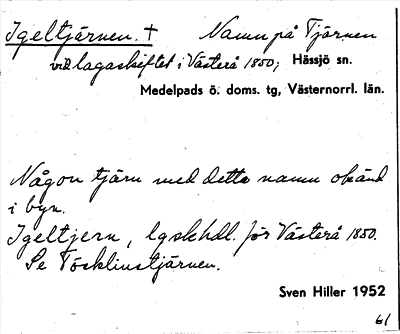 Igeltjärnen. † Namn på Tjärnen
vid lagaskiftet i Västerå 1850; Hässjö sn.
Medelpads ö. doms. tg, Västernorrl. län.
Någon tjärn med detta namn okänd
i byn.
Igeltjern, lgskhdl. för Västerå 1850.
Se Tösklinstjärnen.
Sven Hiller 1952
61